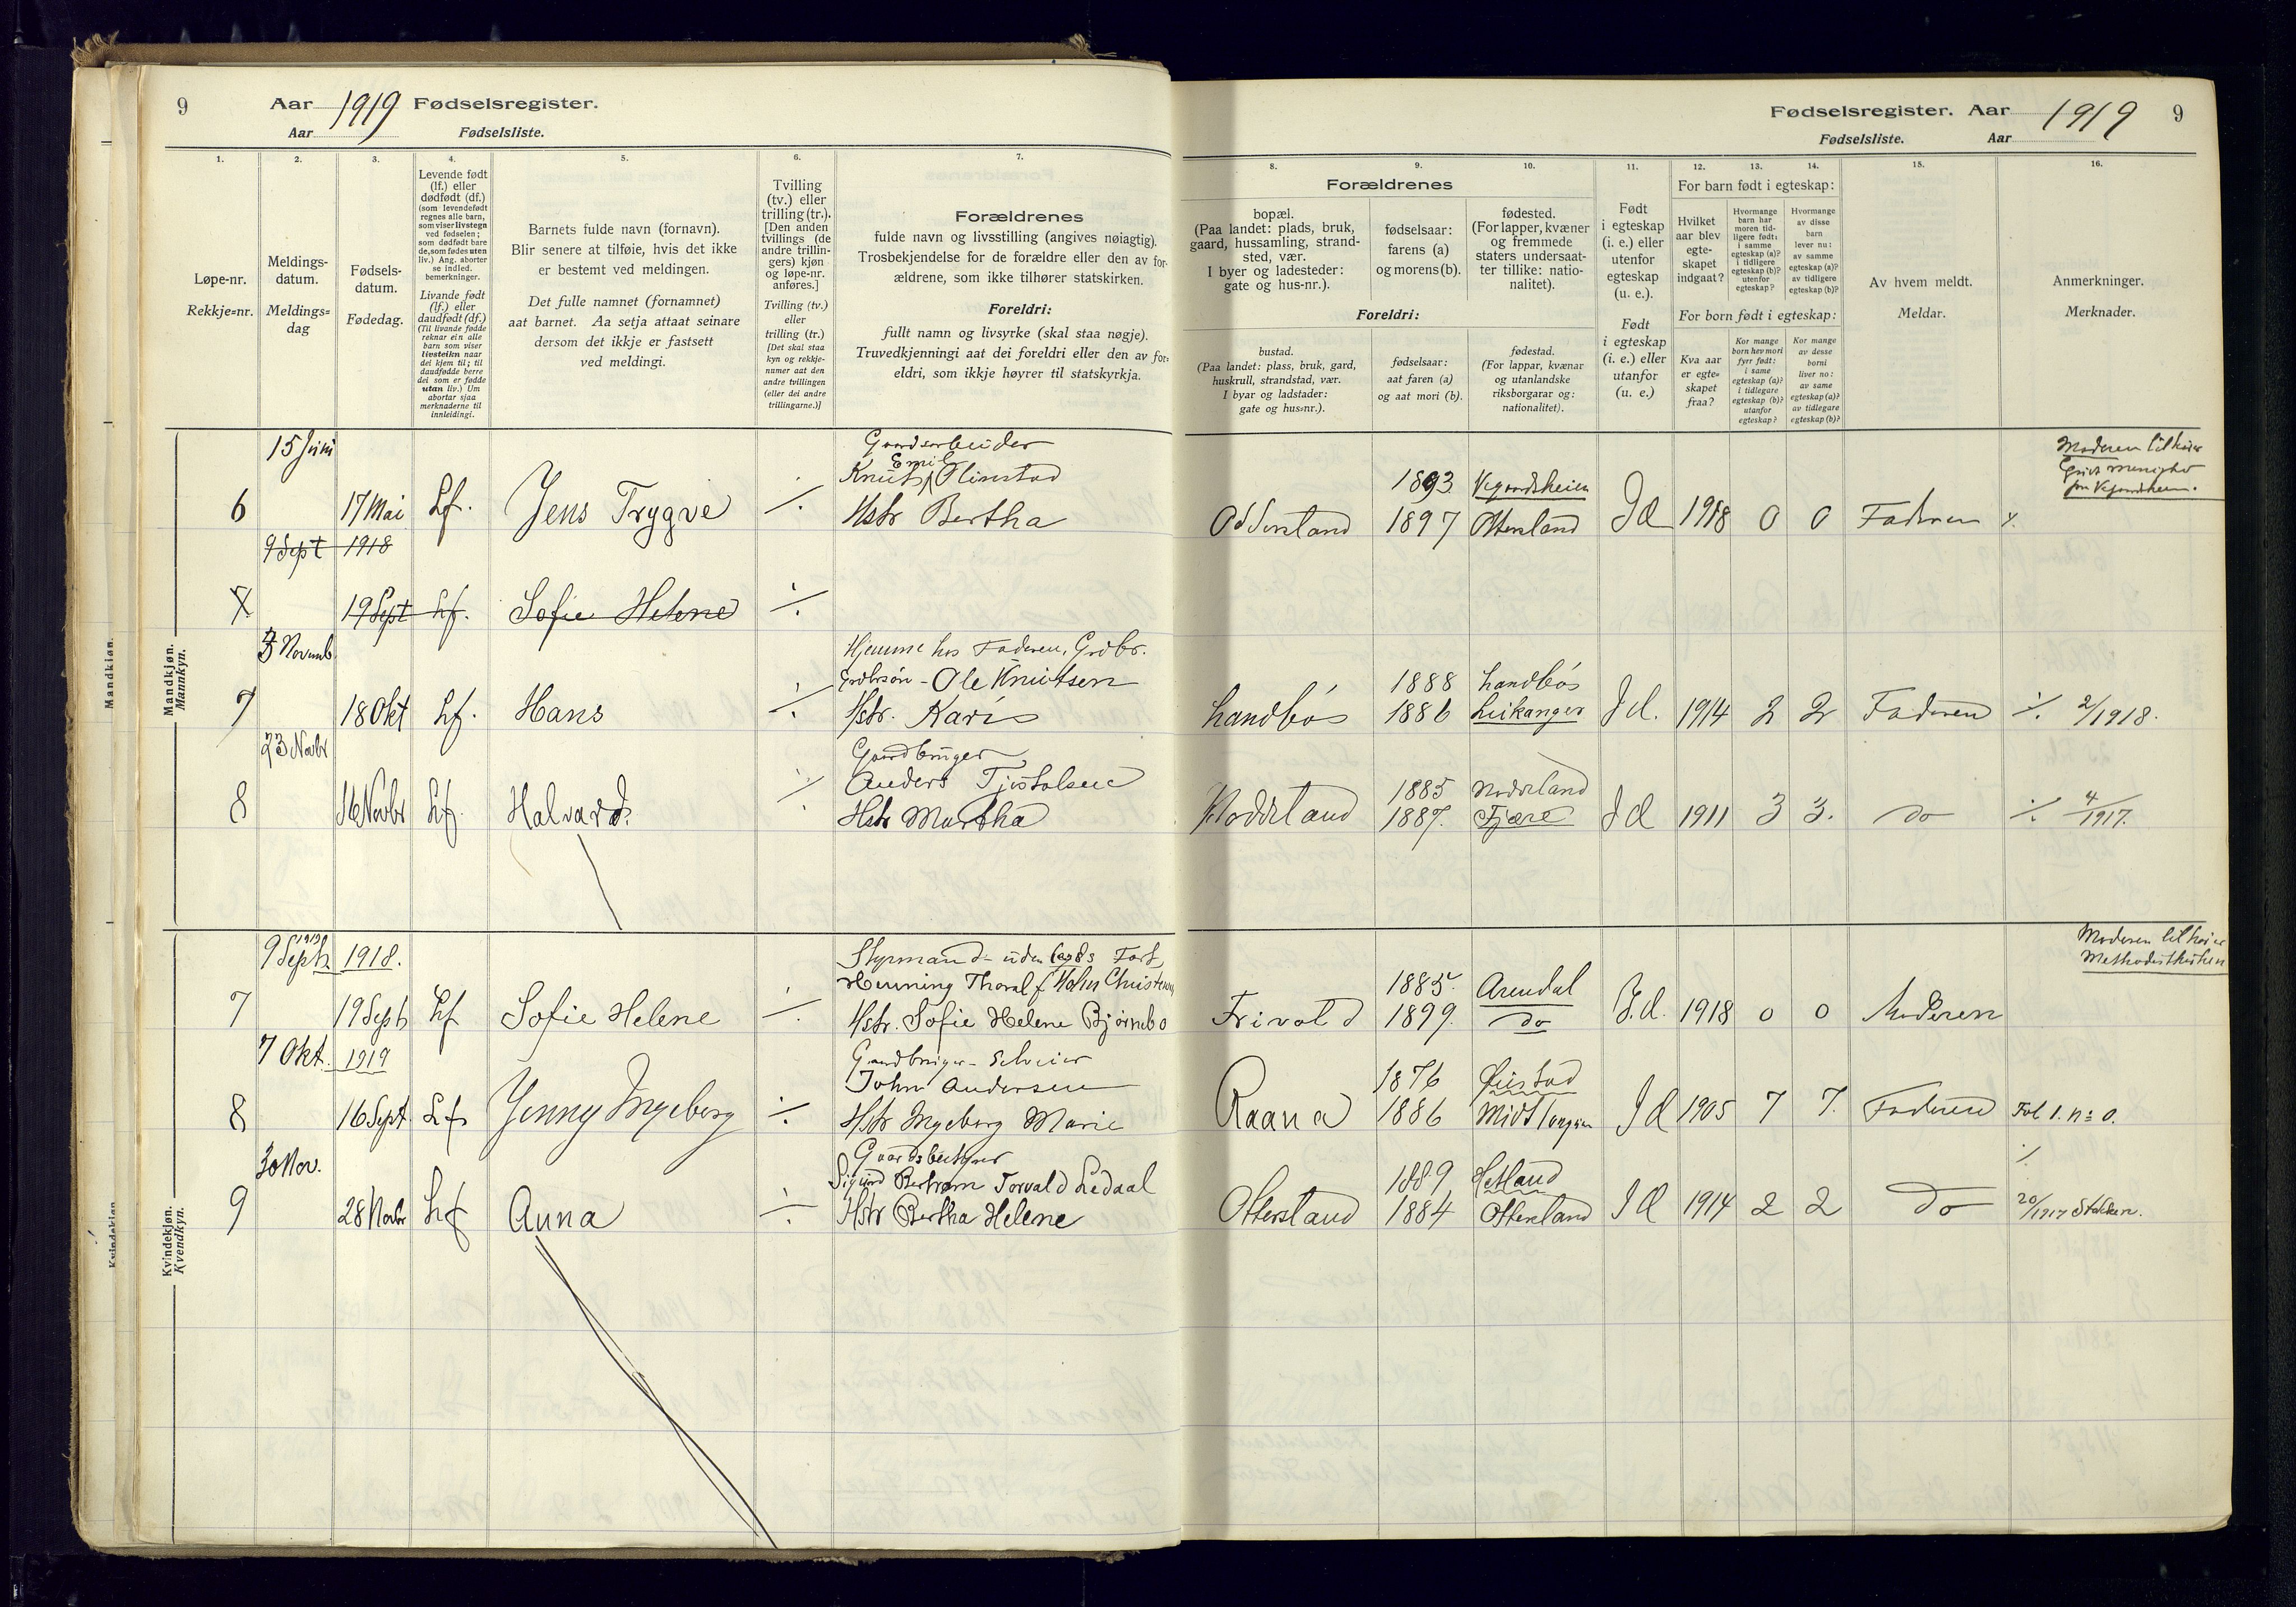 9 Aar 1919 Fødselsregister.
Aar Fødselsliste.
1. 2. 3. 4. 5. 6. 7.
Løpe-nr.
Rekkje=nr.
Meldings-
datum.
Meldings=
dag
Fødsels-
datum.
Fødedag.
Levende født
(lf.) eller
dødfødt (df.)
(som levendefødt
regnes alle barn,
som viser livstegn
ved fødselen;
som dødfødt bare
de, som fødes uten
liv.) Ang. aborter
se indled.
bemerkninger.
Livande født
(lf.) eller
daudfødt (df.)
(Til livande fødde
reknar ein alle
barn som viser
livsteikn naar
dei kjem til; til
daudfødde berre
dei som er fødde
utan liv.) Um
abortar sjaa
merknaderne til
innleidingi.
Barnets fulde navn (fornavn).
Blir senere at tilføie, hvis det ikke
er bestemt ved meldingen.
Det fulle namnet (fornamnet)
aat barnet. Aa setja attaat seinare
dersom det ikkje er fastsett
ved meldingi.
Tvilling
(tv.) eller
trilling (tr.).
[Den anden
tvillings (de
andre trillin-
gers) kjøn
og løpe-nr.
anføres.]
Tvilling (tv.)
eller
trilling (tr.)
[Det skal staa
kyn og rekkje-
numer aat den
andre tvillingen
(eller dei andre
trillingarne.)]
Forældrenes
fulde navn og livsstilling (angives nøiagtig).
Trosbekjendelse for de forældre eller den av for-
ældrene, som ikke tilhører statskirken.
Foreldri:
fullt namn og livsyrke (skal staa nøgje).
Truvedkjenningi aat dei foreldri eller den av for=
eldri, som ikkje høyrer til statskyrkja.
Mandkjøn.
Mandkjøn.
Mannkyn.
15 Juni
Gaardsarbeider
Emil
Knut Olimstad
6 17 Mai Lf. Jens Trygve ÷ Hstr Bertha
9 Sept 1918
19 Sept Lf. Sofie Helene ÷
Novemb
Hjemme hos Faderen, Grdbr.
Ole Knutsen
7 18 Okt Lf. Hans ÷ Hstr. Karis
23 Novbr
Gaardbruger
Anders Tjostolsen
8 16 Novbr Lf. Halvard. ÷ Hstr Martha
Kvindekjøn
Kvindekjøn.
Kvendkyn.
1919
9 Septr 1918.
Styrmand i uden lands Fart
Henning Thoralf Holm Christensen
7 19 Septr Lf Sofie Helene ÷ Hstr. Sofie Helene Bjørnebo
7 Okt. 1919
Gaardbruger - Selveier
John Andersen
8 16 Sept. Lf Jenny Ingeborg ÷ Hstr Ingeborg Marie
30 Nov.
Gaardsbestyrer
Sigurd Bertram Torvald Ledaal
9 28 Novbr Lf Anna ÷ Hstr Bertha Helene
Fødselsregister. Aar 1919 9
Fødselsliste. Aar
8. 9. 10. 11. 12. 13. 14. 15. 16.
Forældrenes
bopæl.
(Paa landet: plads, bruk,
gaard, hussamling, strand-
sted, vær.
I byer og ladesteder:
gate og hus-nr.).
fødselsaar:
farens (a)
og morens (b).
fødested.
(For lapper, kvæner
og fremmede
staters undersaat-
ter tillike: natio-
nalitet).
Foreldri:
bustad.
(Paa landet: plass, bruk, gard,
huskrull, strandstad, vær.
I byar og ladstader:
gate og hus=nr.).
fødselsaar:
aat faren (a)
og aat mori (b).
fødestad.
(For lappar, kvænar
og utanlandske
riksborgarar og:
nationalitet).
Født
i egteskap
(i. e.) eller
utenfor
egteskap
(u. e.).
Født
i egteskap
(i. e.) eller
utanfor
(u. e.)
For barn født i egteskap:
Hvilket
aar blev
egte-
skapet
indgaat?
Hvormange
barn har
moren tid-
ligere født:
i samme
egteskap (a)?
i tidligere
egteskap (b)?
utenfor
egteskap?
Hvormange
av disse
barn
lever nu:
av samme
egteskap (a)?
av tidligere
egteskap (b)?
For born født i egteskap:
Kva aar
er egte=
skapet
fraa?
Kor mange
born hev mori
fyrr født:
i same
egteskap (a)?
i tidlegare
egteskap (b)?
utanfor
egteskap?
Kor mange
av desse
borni
liver no:
av same
egteskap (a)?
av tidlegare
egteskap (b)?
Av hvem meldt.
Meldar.
Anmerkninger.
Merknader.
Moderen tilhører
menighet
1893 Vegaardsheien
Odderstand 1897 Otterstand Id 1918 0 0 Faderen
1888 Landbös
Landbös 1886 Leikanger Id. 1914 2 2 Faderen ÷ 2/1918.
1885
1887. Fjære Id 1911 3 3. do ÷ 4/1917.
Moderen tilhører
Methodistkirken
1885. Arendal
Frivold 1899. do I.d. 1918 0 0 Moderen
1876 Øiestad
Raana 1886 Id 1905 7 7. Faderen Fol 1. n: 0.
1889 Hetland
Otterstand 1884 Otterstand Id 1914 2 2 do 20/1917